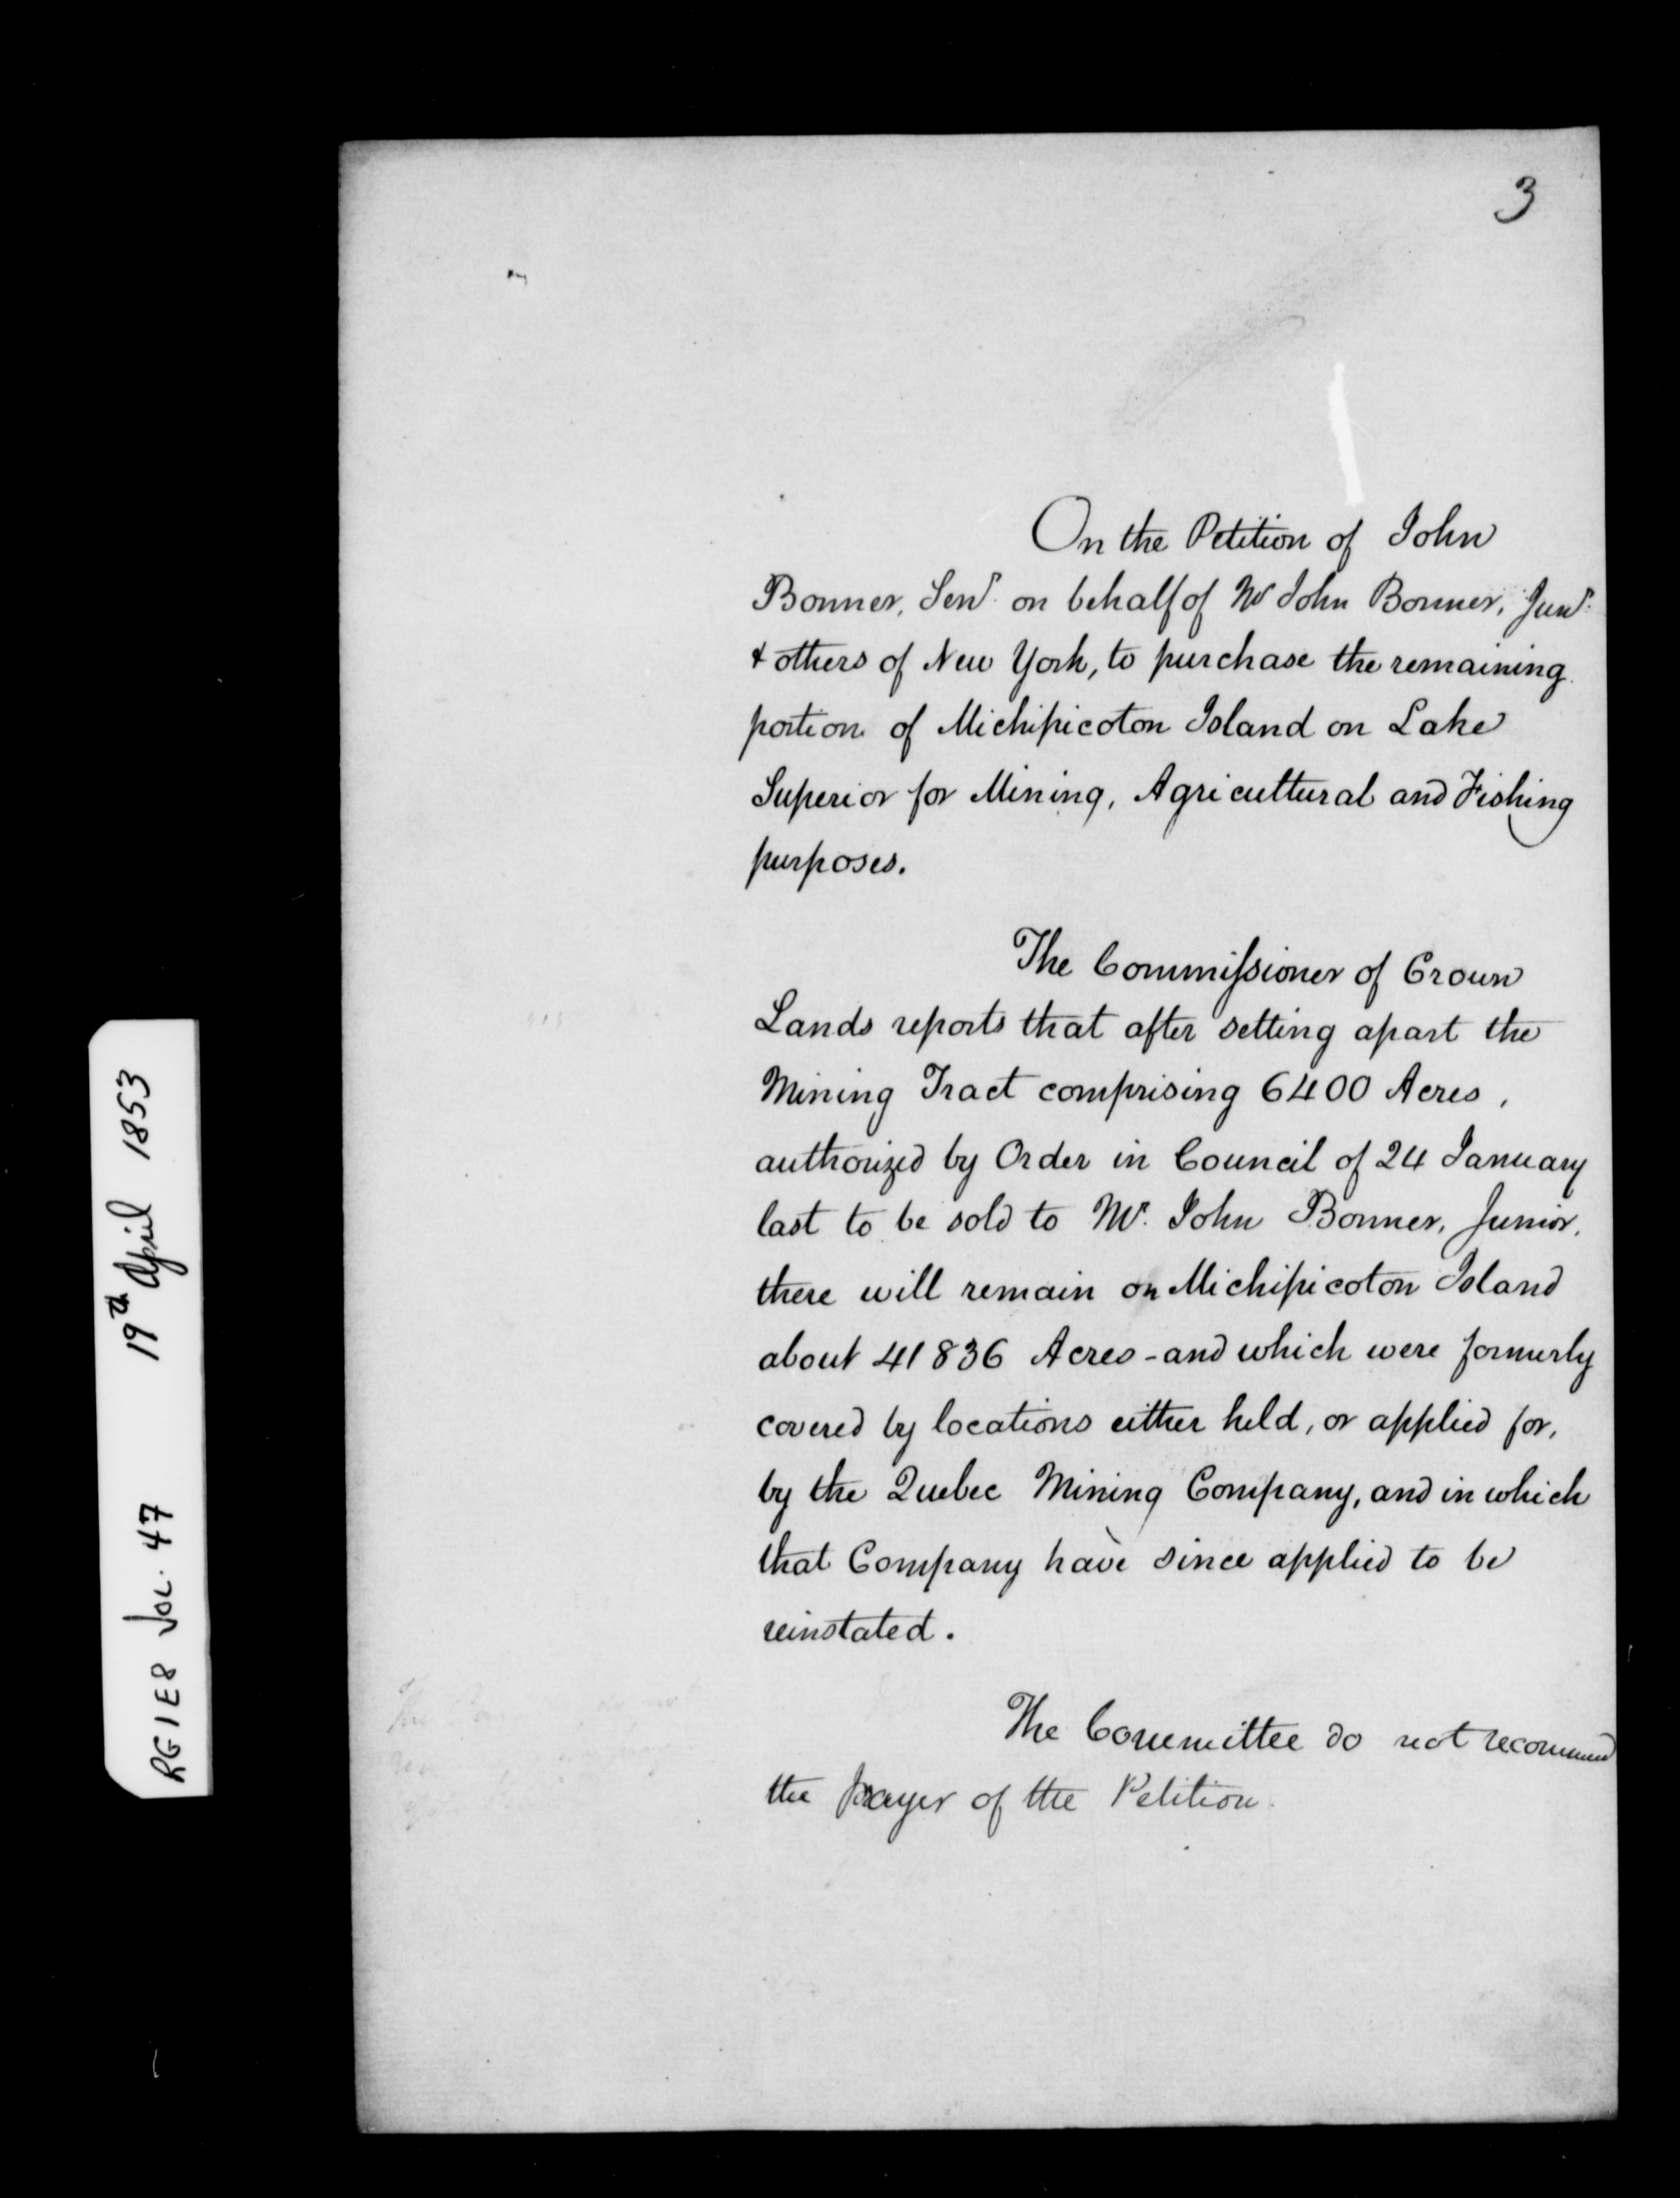 3
On the Petition of John
Bonner, Senr. on behalf of Mr John Bonner, Junr.
& others of New York, to purchase the remaining
portion of Michipicoton Island on Lake
Superior for Mining, Agricultural and Fishing
purposes.
The Commissioner of Crown
Lands reports that after setting apart the
Mining Tract comprising 6400 Acres,
authorized by Order in Council of 24 January
last to be sold to Mr. John Bonner, Junior,
there will remain on Michipicoton Island
about 41836 Acres - and which were formerly
covered by locations either held, or applied for,
by the Quebec Mining Company, and in which
that Company have since applied to be
reinstated.
The Committee do not recommend
the prayer of the Petition.
RG 1 E8 Vol. 47 19th April 1853